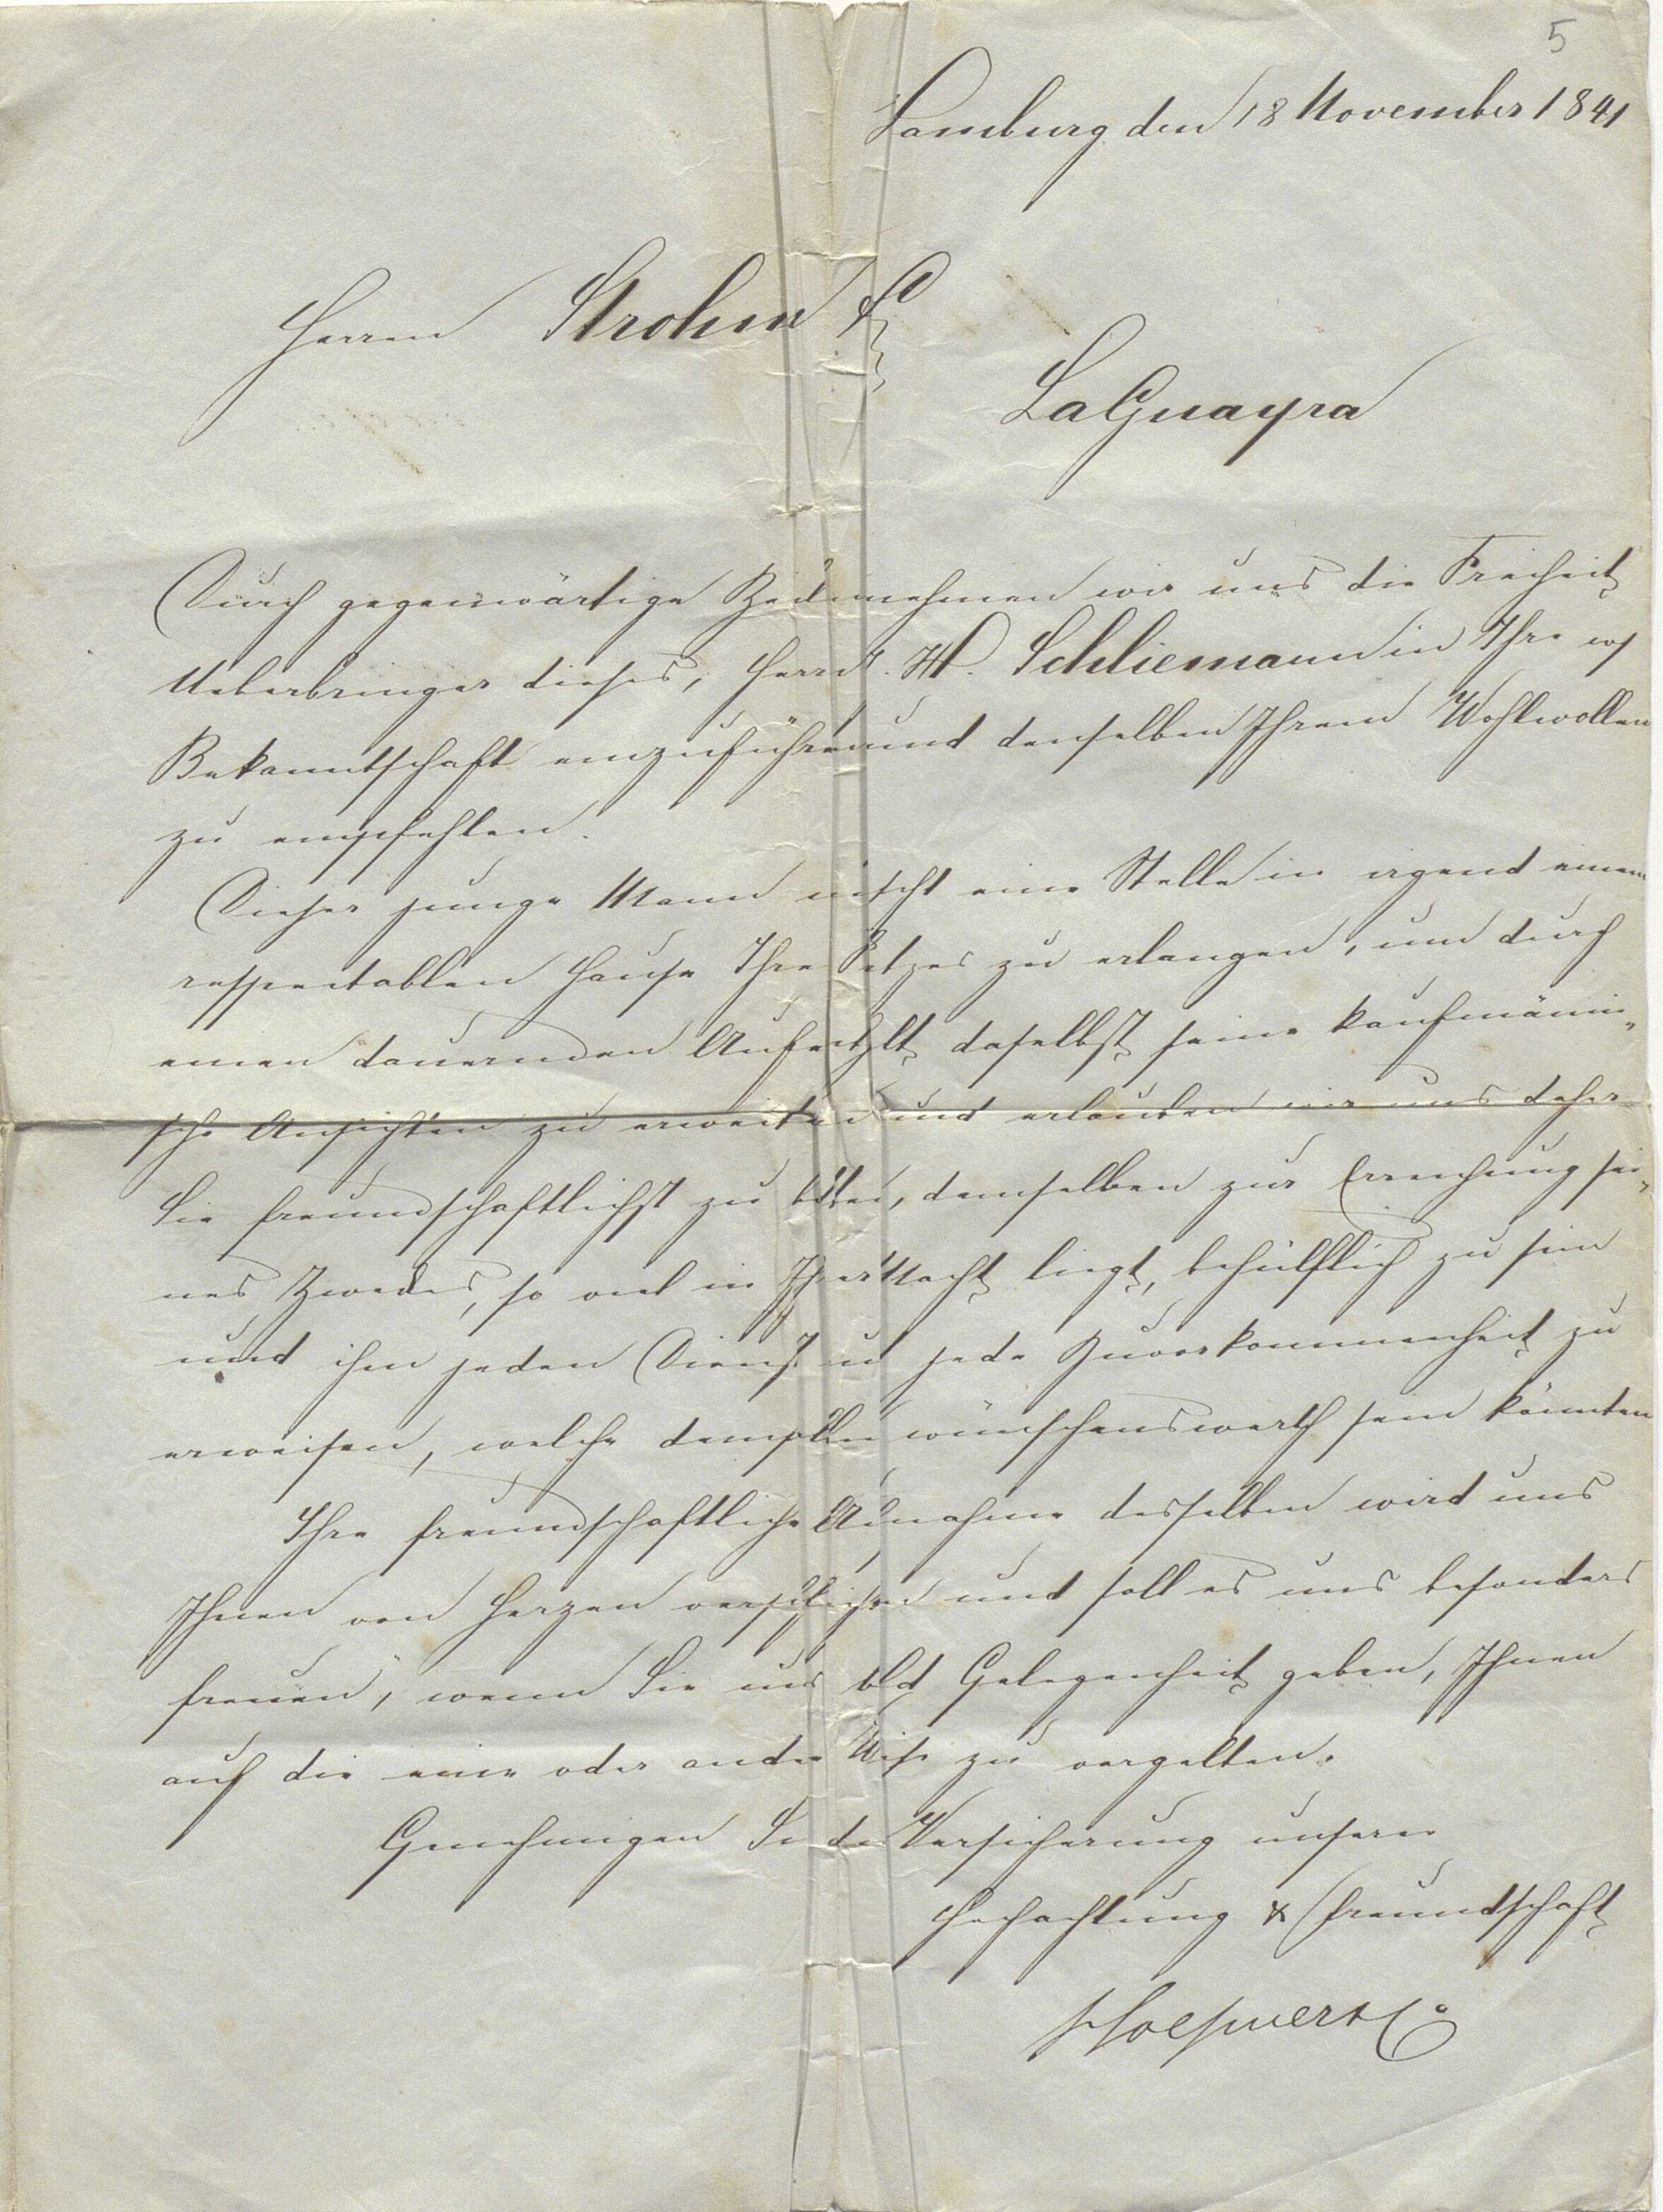 5
Hamburg den 18 November 1841
Herren Strohm &
LaGuayra
Durch gegenwärtige nehmen wir uns die Freiheit
Ueberbringer dieses, Herrn H. Schliemann in Ihre
Bekanntschaft einzuführen und denselben Ihrem Wohlwollen
zu empfehlen.
Dieser junge Mann eine Stelle in irgend einem
respectablen Hause Ihres Platzes zu erlangen, um durch
einen dauernden Aufenthalt daselbst seine kaufmänni-
sche Ansichten zu erweitern und erlauben wir uns daher
Sie freundschaftlichst zu bitten, demselben zur Erreichung sei-
nes Zweckes, so viel in Ihrer Macht liegt, behülflich zu sein
und ihm jeden Dienst u jede Zuvorkommenheit zu
erweisen, welche demselben wünschenswerth sein könnten
Ihre freundschaftliche Aufnahme desselben wird uns
Ihnen von Herzen verpflichten und soll es uns besonders
freuen, wenn Sie uns bald Gelegenheit geben, Ihnen
auf die eine oder andere Weise zu vergelten.
Genehmigen Sie die Versicherung unserer
Hochachtung & Freundschaft